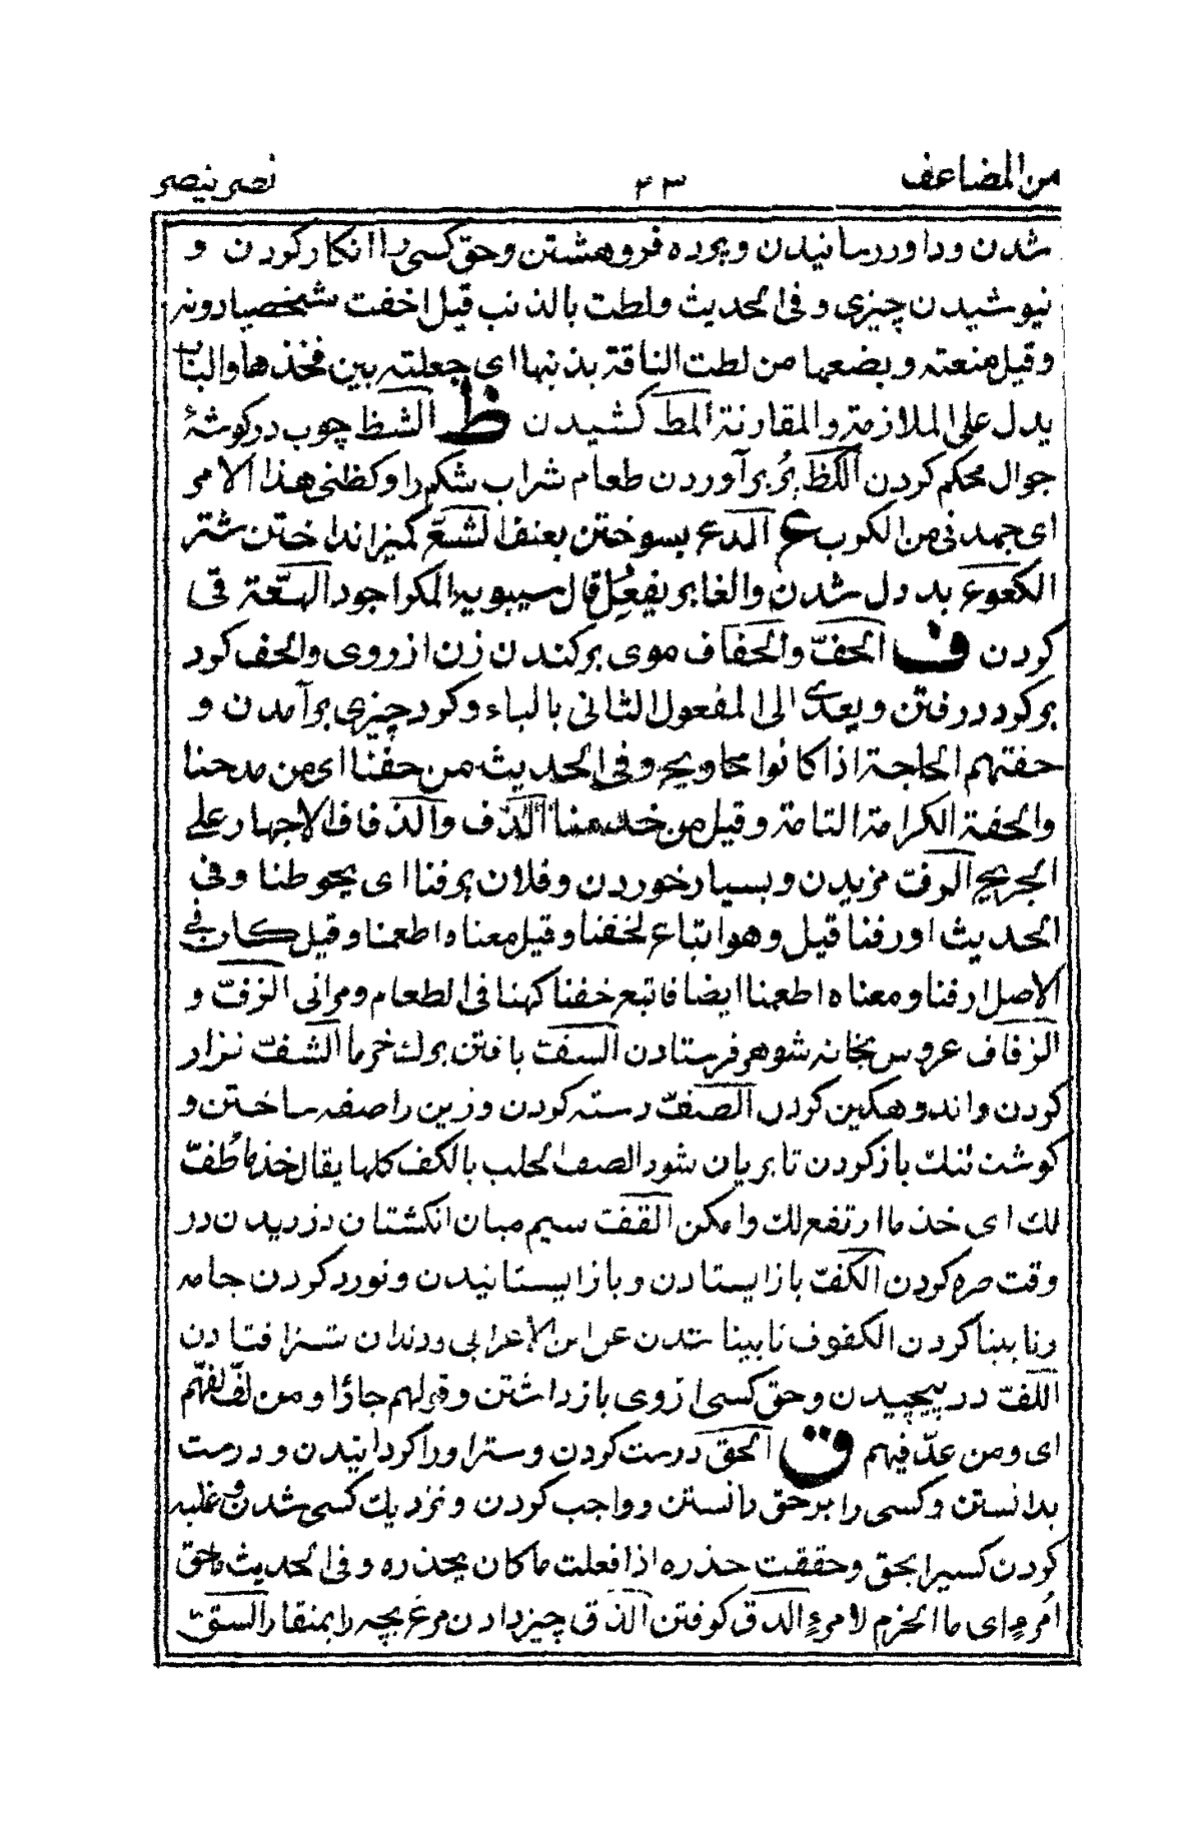 من المضاعف ٤٣ نصر ینصر
شدن ودا وررسانیدن وپرده فروهشتن وحق کسی را انکار کردن و
نیوشیدن چیزی و فی الحدیث ولطت بالذنب قیل اخفت شخصها دونه
وقیل منعته وبضعها من لطت الناقة بذنبها ای جعلته بین فخذها والباب
یدل علی الملازمة والمقارنة المط کشیدن ظ الشظ چوب در گوشۀ
جوال محکم کردن الکظ پُر بر آوردن طعام شراب شکم را وکظنی هذا الامر
ای جهدنی من الکرب ع الدع بسوختن بعنف الشعّ کمیز انداختن شتر
الکعوع بد دل شدن والغابر یفعِل قال سیبویه المکر اجود الهعّة قی
کردن ف الحفّ والحفاف موی بر کندن زن از روی والحف کرد
بر کرد در رفتن ویعدی الی المفعول الثانی بالباء وکرد چیزی بر آمدن و
حفتهم الحاجة اذا کانوا محاویج وفی الحدیث من حفنا ای من مدحنا
والحفة الکرامة التامة وقیل من خدمنا الذف والذفاف الاجهاز علی
الجریح الرف مزیدن وبسیار خوردن وفلان یرفنا ای یحوطنا وفی
الحدیث اورفنا قیل وهو اتباع لحفنا وقیل معناه اطعمنا وقیل کان فی
الاصل ارفنا ومعناه اطعمنا ایضا فاتبع حفنا کهنا فی الطعام ومرانی الزفّ و
الزفاف عروس بخانه شوهر فرستادن السفّ بافتن برک خرما الشف نزار
کردن واندوهکین کردن الصفّ رسته کردن وزین را صفه ساختن و
کوشت تنک باز کردن تا بریان شود الصف الحلب بالکف کلها یقال خذ ما طُفّ
لک ای خذ ما ارتفع لک وامکن القفّ سیم میان انکشتان دزدیدن در
وقت صره کردن الکفّ باز ایستادن وباز ایستانیدن ونورد کردن جامه
ونابینا کردن الکفوف نابینا شدن عن ابن الاعرابی ودندان شتر افتادن
اللفّ در پیچیدن وحق کسی از وی باز داشتن وقولهم جاؤا ومن لفّ لفّهم
ای ومن عدّ فیهم ق الحق درست کردن وستر اورا کردانیدن ودرست
بدانستن وکسی را بر حق دانستن وواجب کردن ونزدیک کسی شدن وغلبه
کردن کسیرا بحق وحققت حذره اذا فعلت ما کان یحذره وفی الحدیث ما حق
اُمرءٍ ای ما الحزم لامرءٍ الدق کوفتن الذق چیز دادن مرغ بچه را بمنقار السقّ